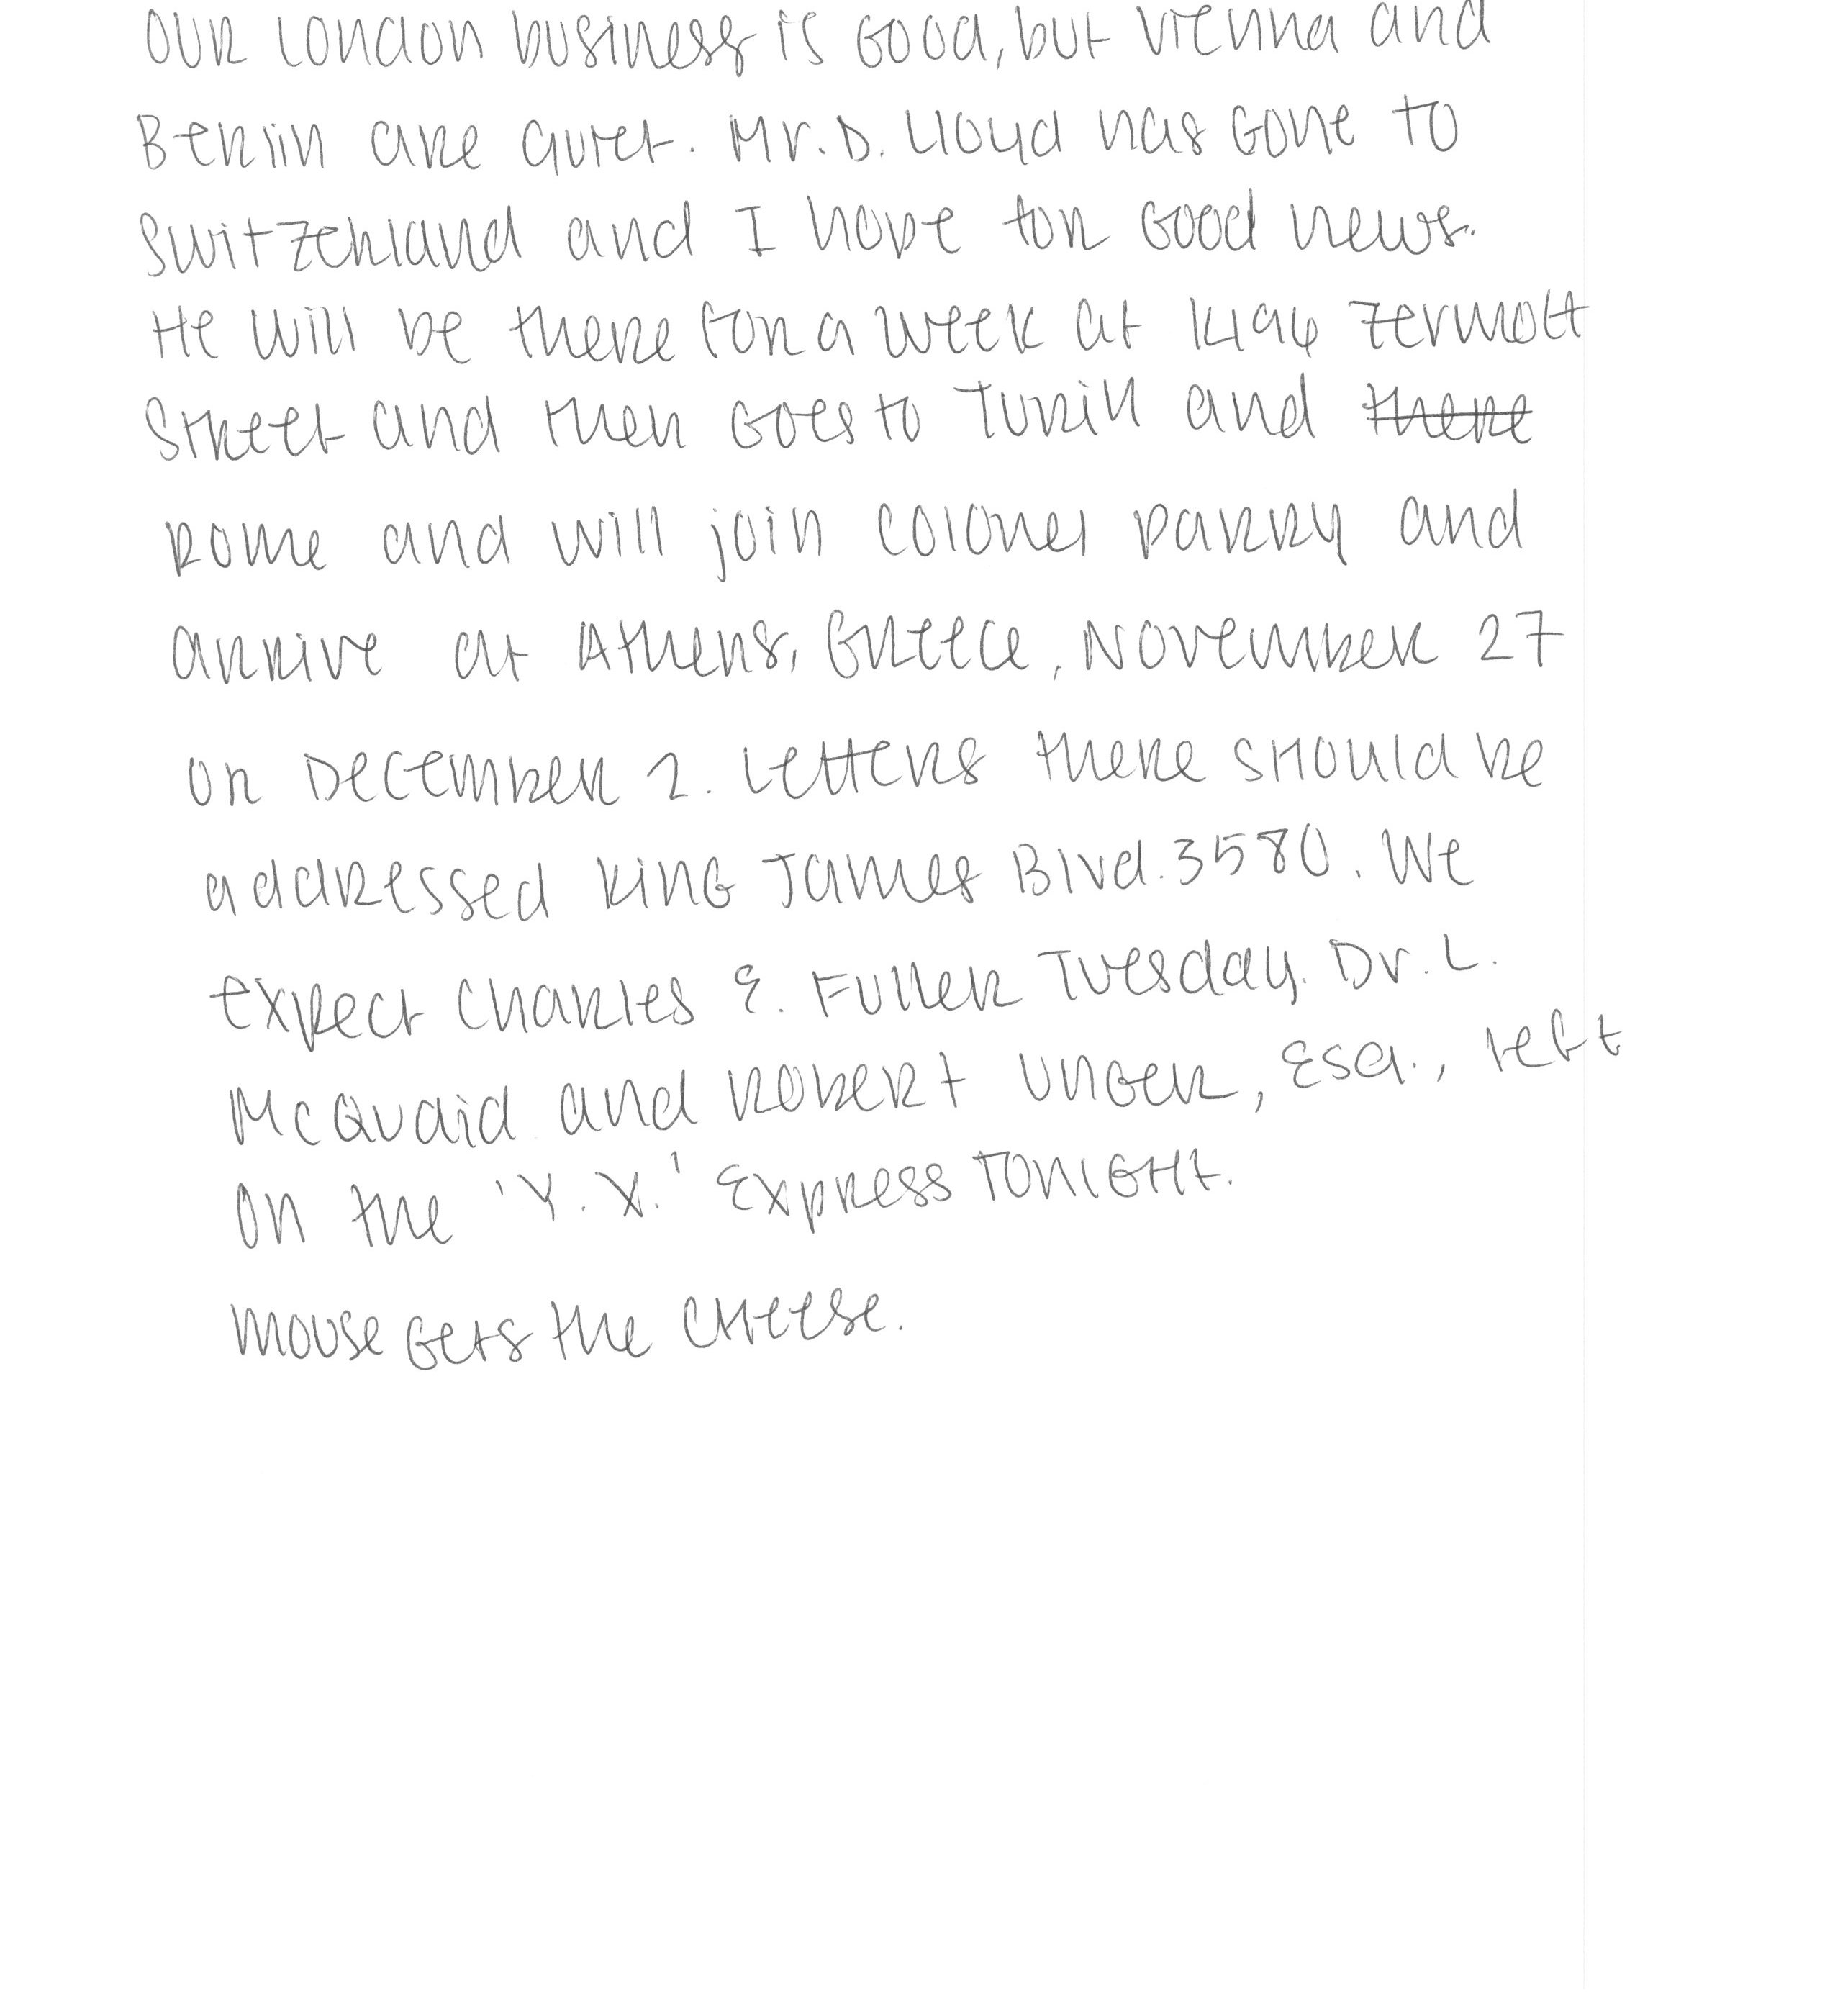 Our London business is Good, but Vienna and
Berlin are quiet. Mr. D. Lloyd has Gone to
Switzerland and I hope for Good news.
He will be there for a week at 1496 Zermott
Street and then Goes to Turin and ~~there~~
Rome and will join Colonel Parry and
arrive at Athens, Greece, November 27
or December 2. Letters there should be
addressed King James Blvd. 3580. We
expect Charles E. Fuller Tuesday. Dr. L.
McQuaid and Robert Unger, Esq., left
on the 'Y. X.' Express TONIGHt.
mouse Gets the cheese.